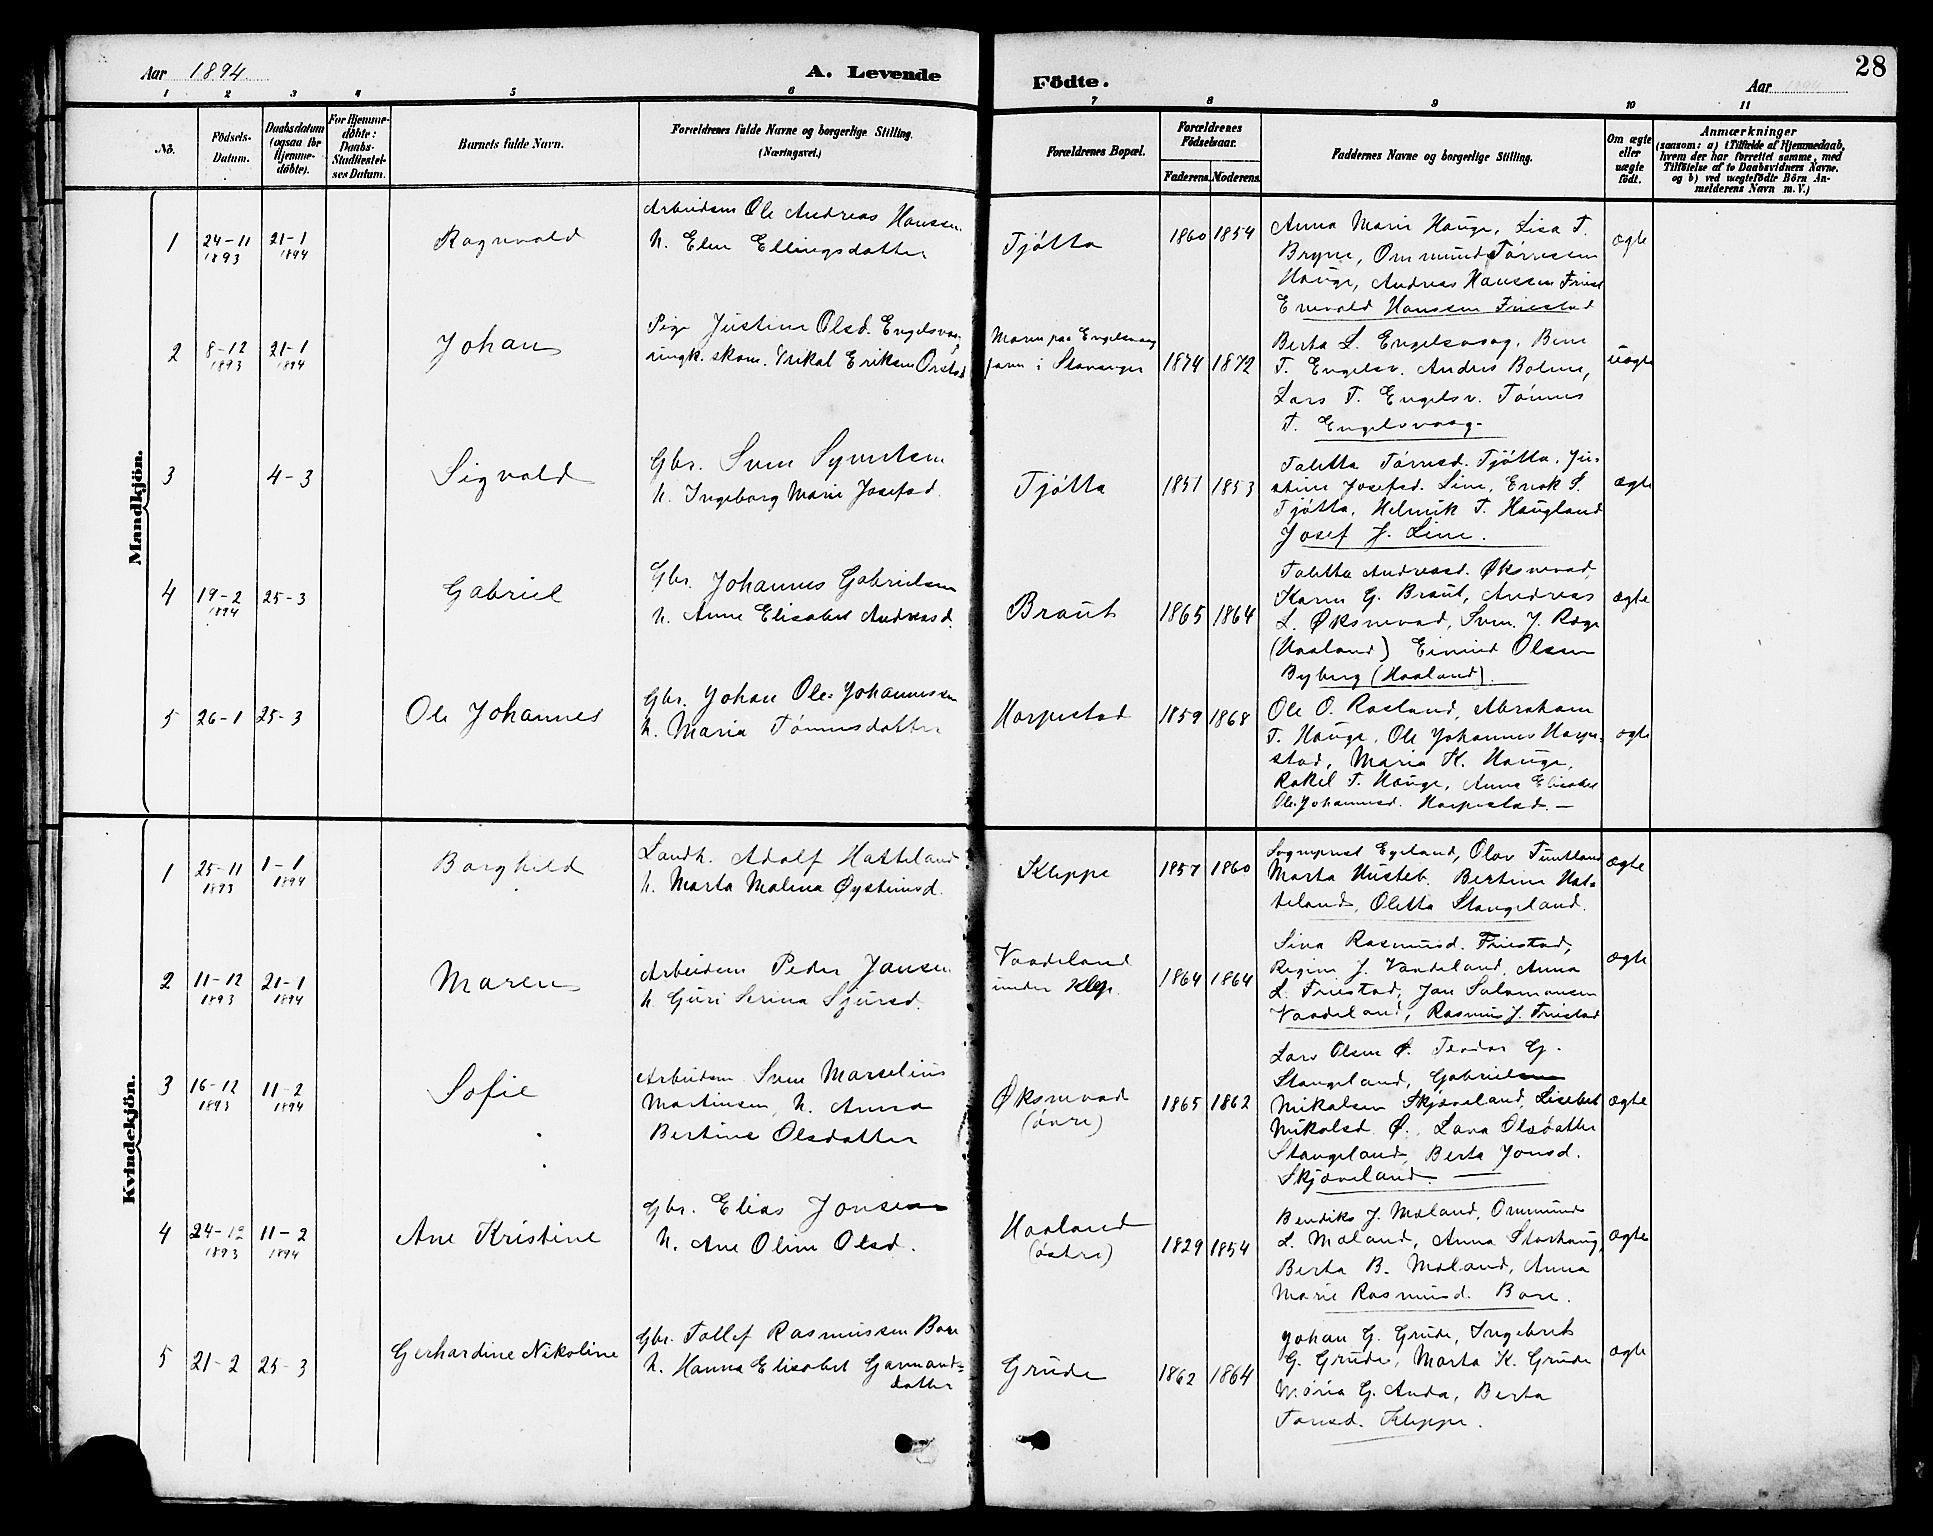 Aar 1894. A. Levende Födte. Aar 28
1 2 3 4 5 6 7 8 9 10 11
No. Födsels-Datum. Daabsdatum (ogsaa for Hjemme-döbte). For Hjemme-döbte: Daabs-Stadfæstel-ses Datum. Barnets fulde Navn. Forældrenes fulde Navne og borgerlige Stilling. (Næringsvei.) Forældrenes Bopæl. Forældrenes Födselsaar. Faderens. Moderens. Faddernes Navne og borgerlige Stilling. Om ægte eller uægte födt. Anmærkninger (saasom: a) i Tilfælde af Hjemmedaab, hvem der har forrettet samme, med Tilföielse af to Daabsvidners Navne, og b) ved uægtefödte Börn An-melderens Navn m. V.)
Mandkjön.
1 24-11 1893 21-1 1894 Ragnvald
Arbeidsm Ole Andreas Hanssen
h. Elen Ellingsdatter
Tjøtta 1860 1854
Anna Marie Hauge, Lisa T.
Bryne, Ommund Tørressen
Hauge, Andreas Hanssen Friest
Enevald Hanssen Friestad
ægte
2 8-12 1893 21-1 1894 Johan
Pige Justine Olsd. Engelsvaag
ungk. skom. Mikal Eriksen Orstad
Moren paa Engelsvaag
faren i Stavanger 1874 1872
Berta L. Engelsvaag,
T. Engelsv. Andreas
Lars T. Engelsv. Tønnes
T. Engelsvaag
uægte
3 4-3 Sigvald
Gbr. Sven Syvertsen
h. Ingeborg Marie Josefsd.
Tjøtta 1851 1853
Taletta Tørresd. Tjøtta, Ju-
stine Josefsd. Line, Enok S.
Tjøtta, Helmik T. Haugland
Josef J. Line.
ægte
4 19-2 1894 25-3 Gabriel
Gbr. Johannes Gabrielsen
h. Anne Elisabet Andreasd.
Braut 1865 1864
Taletta Andreasd. Øksnevad,
Karen G. Braut, Andreas
L. Øksnevad, Sven J. Rege
(Haaland) Eivind Olsen
Byberg (Haaland).
ægte
5 26-1 25-3 Ole Johannes
Gbr. Johan Ole-Johannessen
h. Maria Tønnesdatter
Horpestad 1859 1868
Ole O. Rosland, Abraham
T. Hauge, Ole Johannes Horpe-
stad, Maria K. Hauge,
Rakel T. Hauge, Anna Elisabet
Ole-Johannesd. Horpestad.—
ægte
Kvindekjön.
1 25-11 1893 1-1 1894 Borghild
Landh. Adolf Hatteland
h. Marta Malena Øysteinsd.
Kleppe 1857 1860
Sogneprest Egeland, Olav Tuntland
Marta Husteb. Bertine Hat-
teland, Oletta Stangeland.
ægte
2 11-12 1893 21-1 1894 Maren
Arbeidsm Peder Jansen
h. Guri Serina Sjursd.
Vaadeland
under Klep. 1864 1864
Sina Rasmusd. Friestad,
Regine J. Vaadeland, Anna
L. Friestad, Jan Salamonsen
Vaadeland, Rasmus J. Friestad
ægte
3 16-12 1893 11-2 1894 Sofie
Arbeidsm Sven Marselius
Martinsen, h. Anna
Bertine Olsdatter
Øksnevad
(øvre) 1865 1862
Lars Olsen Ø. Teodor G.
Stangeland, Gabrielsen
Mikalsen Skjæveland, Lisebet
Mikalsd Ø., Lava Olsdatter
Stangeland, Berta Jonsd.
Skjæveland.
ægte
4 24-12 1893 11-2 1894 Ane Kristine
Gbr. Elias Jonsen
h. Ane Oline Olsd.
Haaland
(østre) 1829 1854
Bendiks J. Mæland, Ommund
L. Mæland, Anna Storhaug,
Berta B. Mæland, Anna
Marie Rasmusd. Bore.
ægte
5 21-2 25-3 Gerhardine Nikoline
Gbr. Tollef Rasmussen Bore
h. Hanna Elisabet Garmand-
datter
Grude 1862 1864
Johan G. Grude, Ingebret
G. Grude, Marta K. Grude
Maria G. Anda, Berta
Tonesd. Kleppe.
ægte